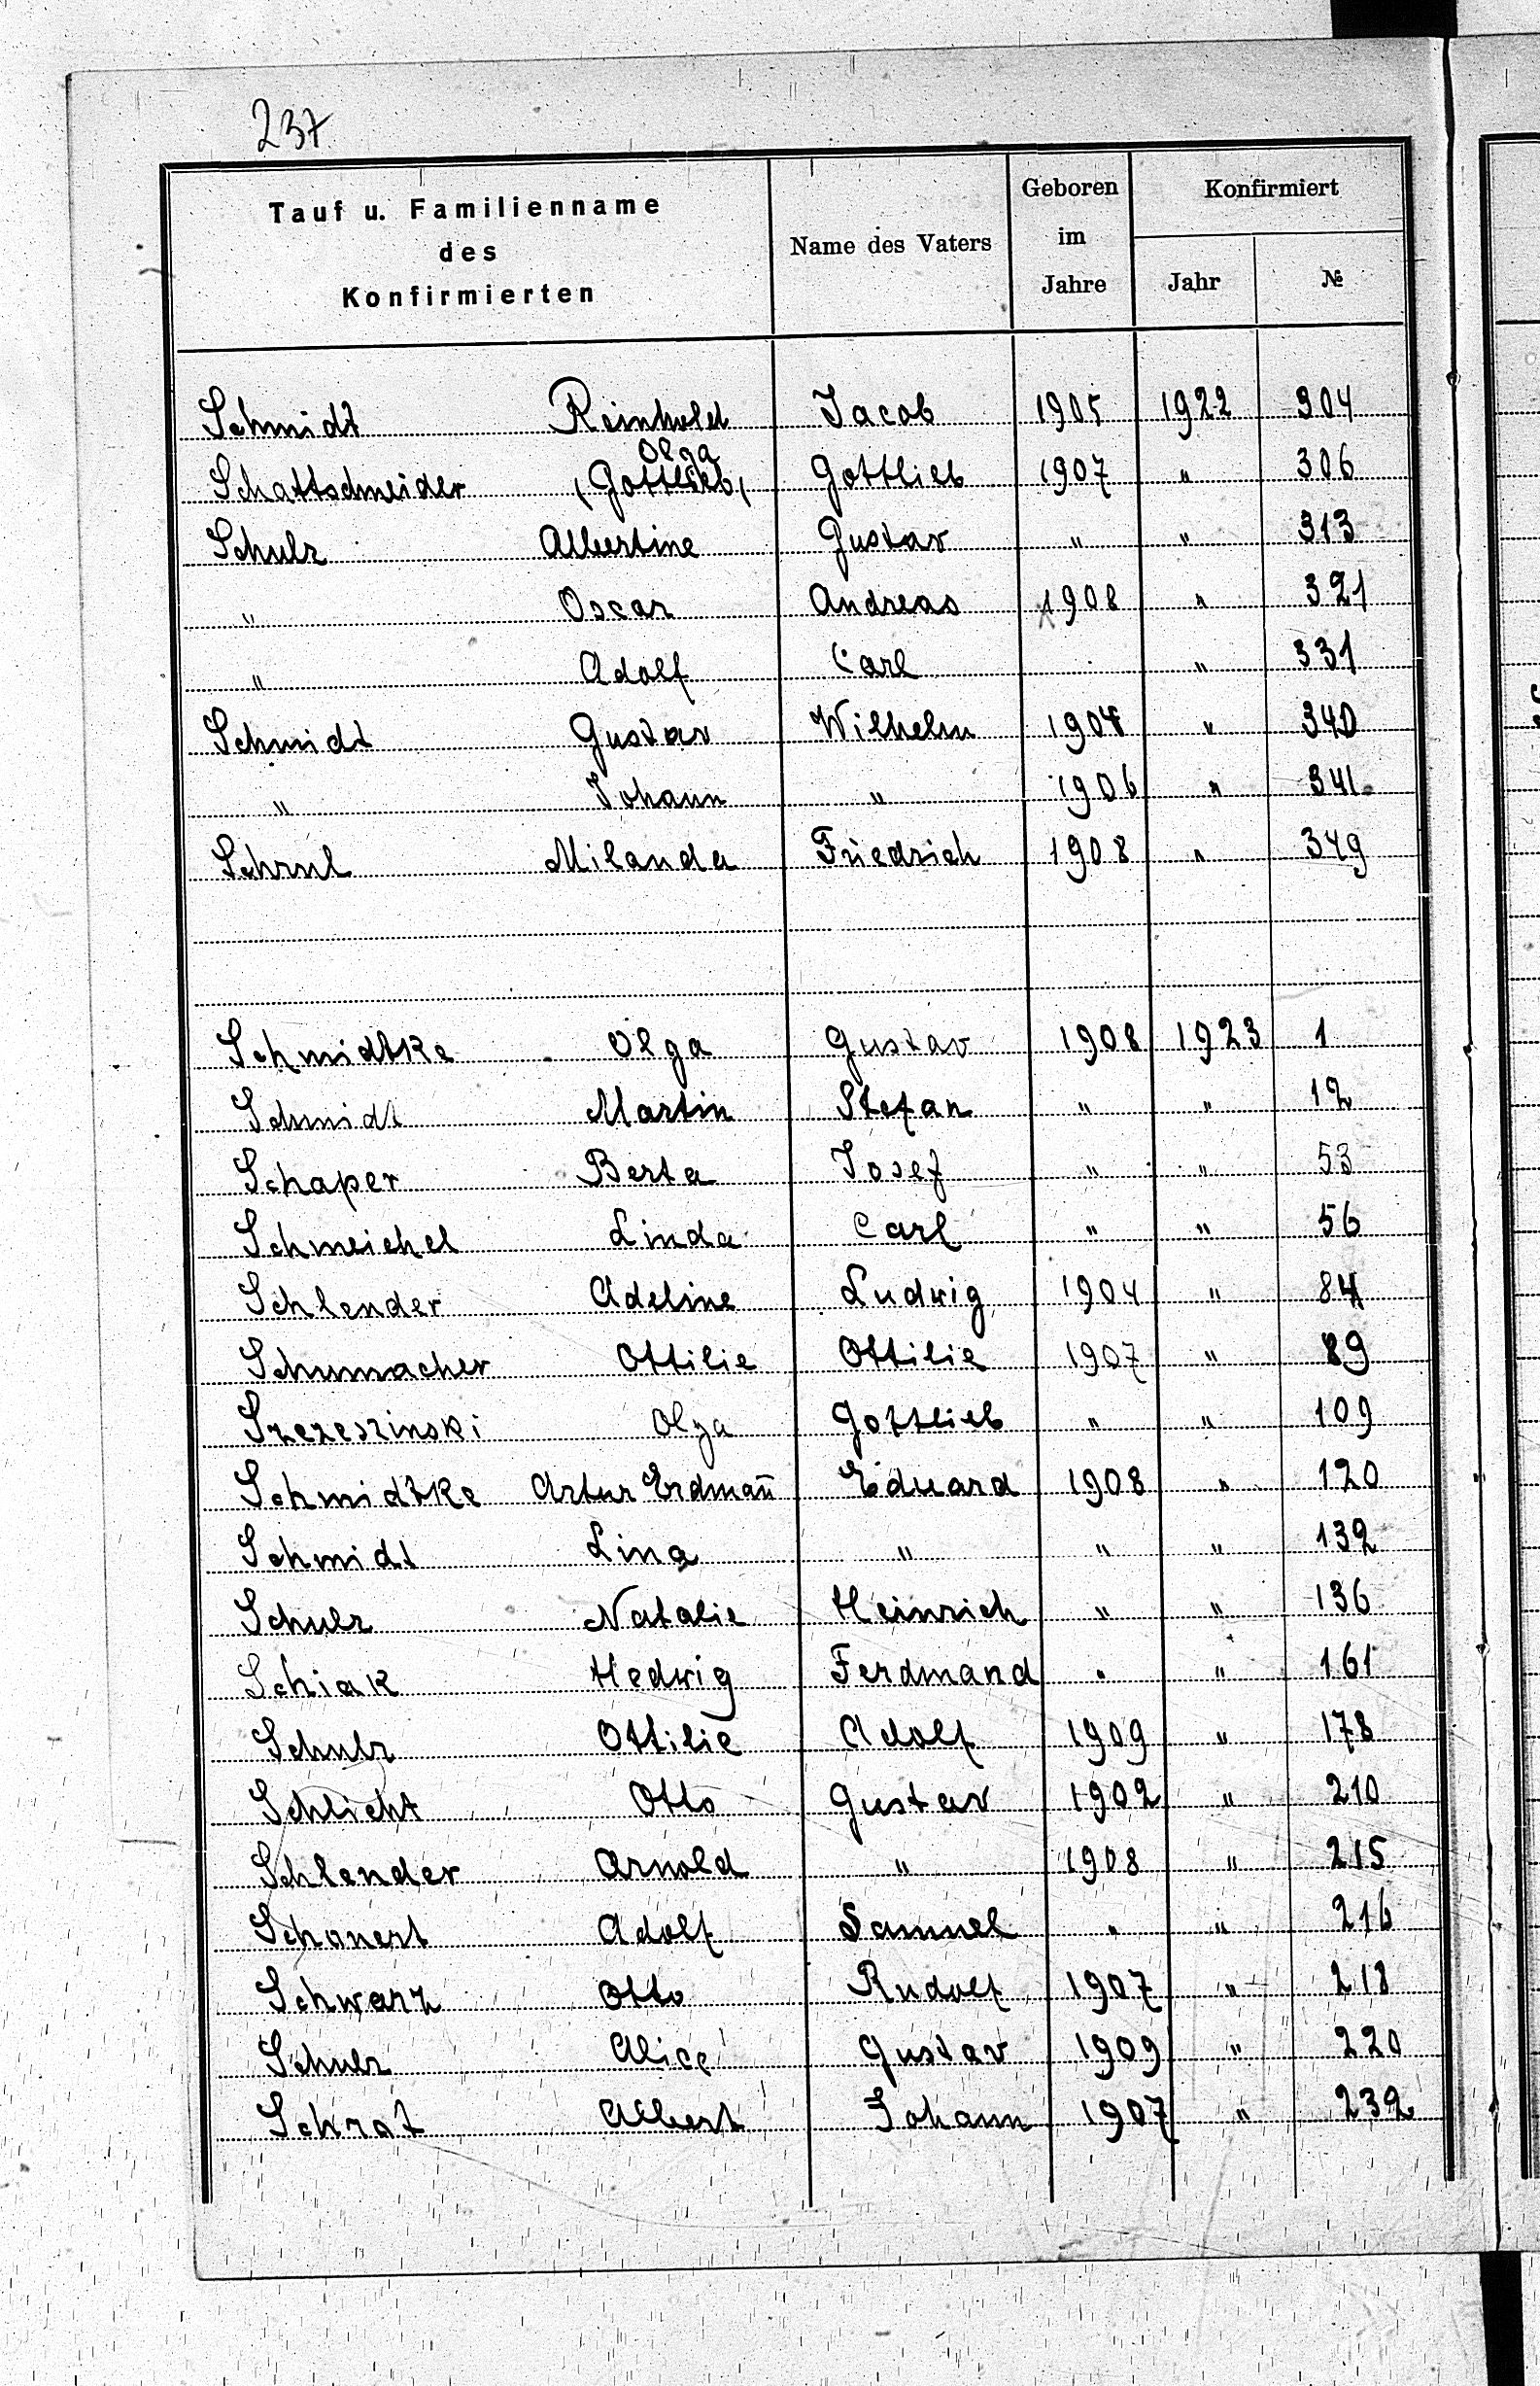 237
Tauf u. Familienname des Konfirmierten | Name des Vaters | Geboren im Jahre | Konfirmiert Jahr | №
Schmidt Reinhold Jacob 1905 1922 304
Olga
Schattschneider (Gottlieb) Gottlieb 1907 " 306
Schulz Albertine Gustav " " 313
" Oscar Andreas 1908 " 321
" Adolf Carl " 331
Schmidt Gustav Wilhelm 1904 " 340
" Johann " 1906 " 341
Milanda Friedrich 1908 " 349
Schmidtke Olga Gustav 1908 1923 1
Schmidt Martin Stefan " " 12
Schaper Berta Josef " " 53
Schmeichel Linda Carl " " 56
Schlender Adeline Ludwig 1904 " 84
Schumacher Ottilie Ottilie 1907 " 89
Szczeszinski Olga Gottlieb " " 109
Schmidtke Artur Erdman̄ Eduard 1908 " 120
Schmidt Lina " " " 132
Schulz Natalie Heinrich " " 136
Schiak Hedwig Ferdinand " " 161
Schulz Ottilie Adolf 1909 " 178
Schlicht Otto Gustav 1902 " 210
Schlender Arnold " 1908 " 215
Schonert Adolf Samuel " " 216
Schwarz Otto Rudolf 1907 " 218
Schulz Alice Gustav 1909 " 220
Schrat Albert Johann 1907 " 232